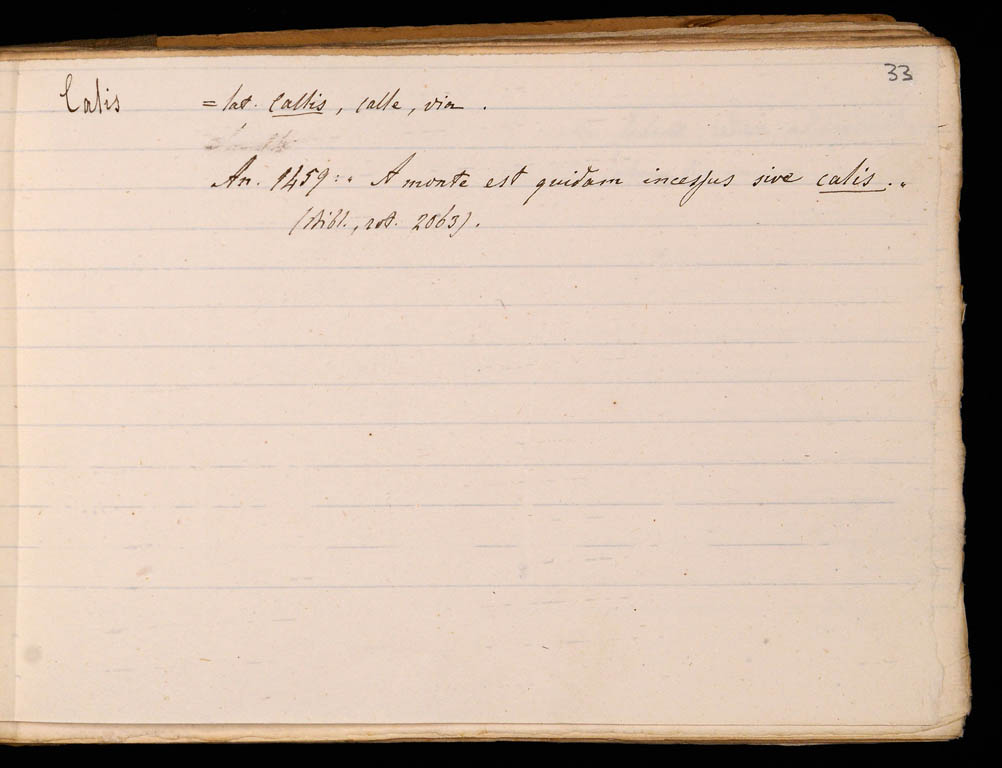 33
Calis = lat. callis, calle, via.
An. 1459: " A monte est quidam incessus sive calis. "
(Bibl., rot. 2063).